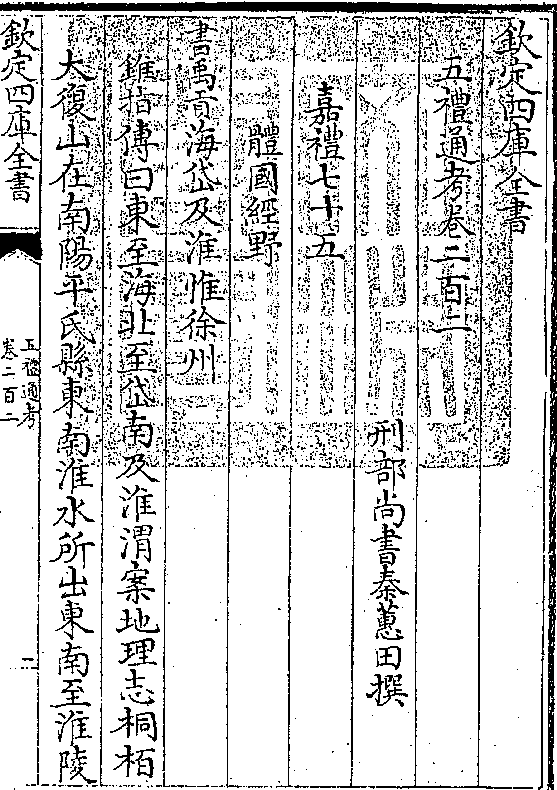 欽定四庫全書
五禮通考卷二百二
刑部尚書秦蕙田撰
嘉禮七十五
體國經野
書禹貢海岱及淮惟徐州
錐指傳曰東至海北至岱南及淮渭案地理志桐栢
大復山在南陽平氏縣東南淮水所出東南至淮陵
欽定四庫全書
五禮通考
卷二百二
一